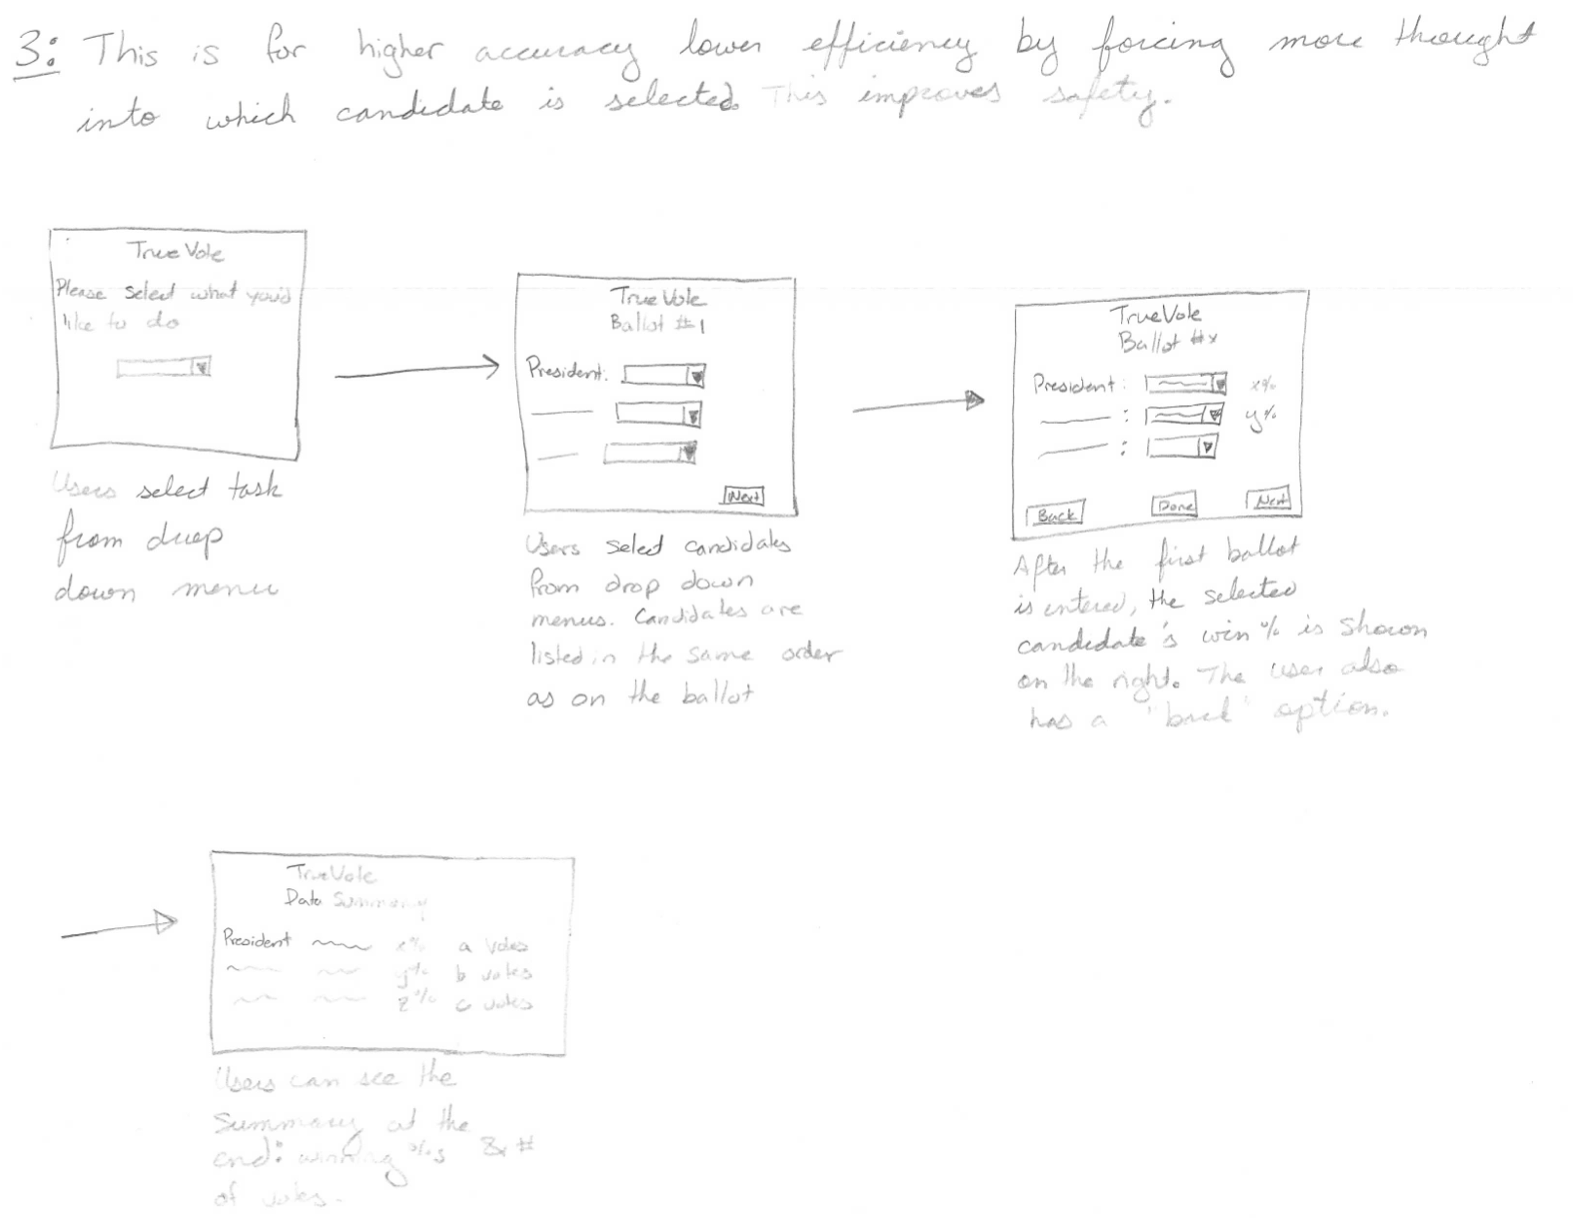 3: This is for higher accuracy lower efficiency by forcing more thought
into which candidate is selected. This improves safety.
TrueVote
Please select what you'd
like to do
Users select task
from drop
down menu
TrueVote
Ballot #1
President:
Next
Users select candidates
from drop down
menus. Candidates are
listed in the same order
as on the ballot
TrueVote
Ballot #x
President: x%
: y%
:
Back Done Next
After the first ballot
is entered, the selected
candidate's win % is shown
on the right. The user also
has a "back" option.
TrueVote
Data Summary
President x% a votes
y% b votes
z% c votes
Users can see the
summary at the
end: winning %s & #
of votes.